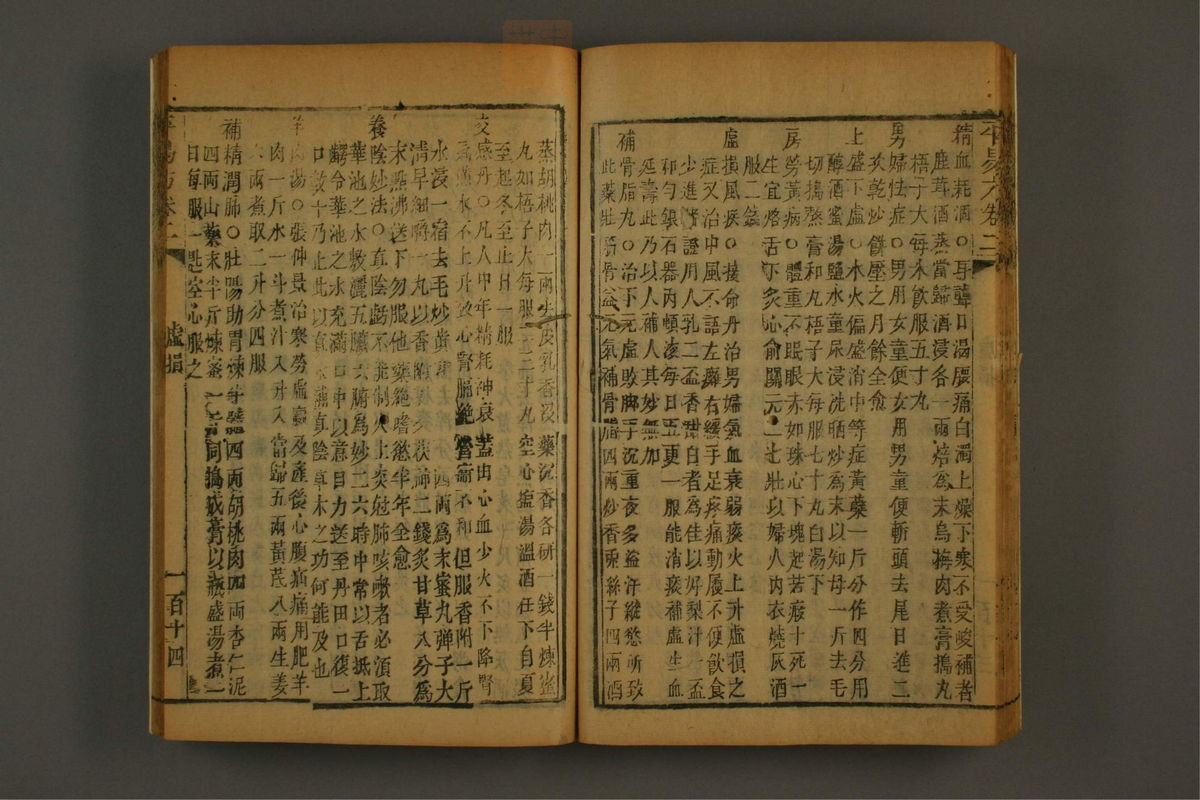 精血耗涸○耳聾口渴腰痛白濁上燥下寒不受峻補者
鹿茸酒蒸當歸酒浸各一兩焙為末烏梅肉煮膏搗丸
梧子大每米飲服五寸丸
男婦怯症○男用女童便女用男童便斬頭去尾日進二
次乾炒餅壓之月餘全愈
上盛下虛○水火偏盛消中等症黃蘗一斤分作四分用
醇酒蜜湯鹽水童尿浸洗晒炒為末以知母一斤去毛
切搗熬膏和丸梧子大每服七十丸白湯下
房勞黃病○體重不眠眼赤如珠心下塊起若瘕十死一
生宜烙舌下灸心俞關元二七壯以婦人內衣燒灰酒
服二錢
虛損風疾○接命丹治男婦氣血衰弱痰火上升虛損之
症又治中風不語左癱右緩手足疼痛動履不便飲食
少進等證用人乳二盃香甜白者為佳以好梨汁一盃
和勻銀石器內頓滾每日五更一服能消痰補虛生血
延壽此乃以人補人其妙無加
補骨脂丸○治下元虛敗脚手沉重夜多盜汗縱慾所致
此藥壯筋骨益元氣補骨脂四兩炒香兎絲子四兩酒
蒸胡桃肉一兩去皮乳香沒藥沉香各研一錢半煉蜜
丸如梧子大每服二三十丸空心鹽湯溫酒任下自夏
至起冬至止日一服
交感丹○凡人中年精耗神衰蓋由心血少火不下降腎
氣憊水不上升致心腎膈絕營衛不和但服香附一斤
水浸一宿去毛炒黃 四兩為末蜜丸彈子大
清早細嚼一丸以香附 茯神二錢炙甘草八分為
末點沸送下勿服他藥絕嗜慾半年全愈
養陰妙法○直陰虧不能制火上炎尅肺咳嗽者必須取
華池之水數灑五臟六腑為妙二六時中常以舌抵上
齶令華池之水充滿口中以意目力送至丹田口復一
口數十乃止此以真 補真陰草木之功何能及也
羊肉湯○張仲景治寒勞虛羸及產後心腹疝痛用肥羊
肉一斤水一斗煮汁八升入當歸五兩黃芪八兩生姜
六兩煮取二升分四服
補精潤肺○壯陽助胃 四兩胡桃肉四兩杏仁泥
四兩山藥末半斤煉蜜一斤同搗成膏以瓶盛湯煮一
日每服一匙空心服之
虛損
一百十四